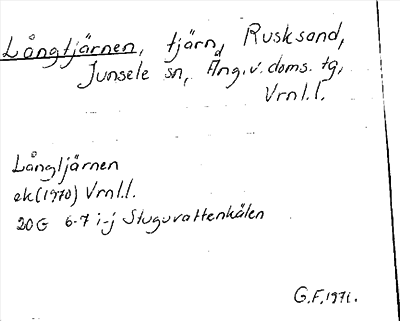 Långtjärnen, tjärn, Rusksand,
Junsele sn, Ång. v. doms. tg,
Vrnl.l.
Långtjärnen
ek (1970) Vrnl.l.
20G 6-7 i-j Stuguvattenkälen
G.F. 1971.